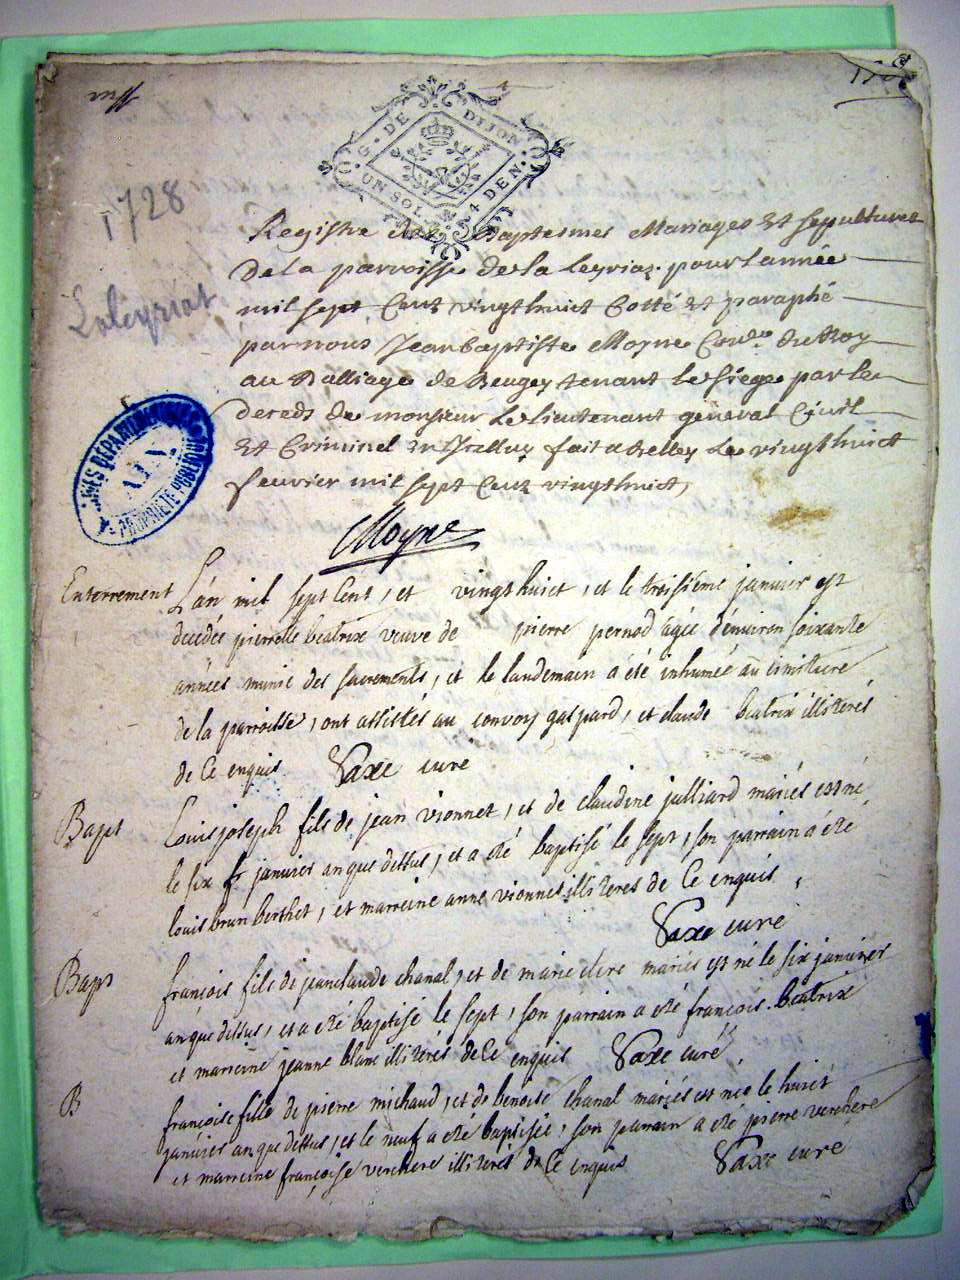 G. DE DIJON
UN SOL 4 DEN.
1728
Laleyriat
Registre des Baptesmes Mariages Et sepultures
De la parroisse de la Leyriaz pour lannée
mil sept Cent vingthuict Cotté Et paraphé
par nous Jean baptiste Moyne Conr. du Roy
au Balliage de Beugey tenant le siege par le
deceds de monsieur Le lieutenant general Civil
Et Criminel en Icelluy fait a Belley Le vingthuict
feuvrier mil sept Cent vingthuict,
Moyne
ARCHIVES DÉPARTEMENTALES
AIN
PROPRIÉTÉ PUBLIQUE
Enterrement L'an mil sept Cent, et vingt huict, et le troisième janvier est
decedée pierrette beatrix veuve de pierre pernod agée d'environ soixante
années munie des sacrements, et le landemain a été inhumée au cimitiere
de la parroisse, ont assistés au convoy gaspard, et claude beatrix illiterés
de Ce enquis Saxe curé
Bapt Louis joseph fils de jean vionnet, et de claudine julliard mariés est né
le six janvier an que dessus, et a eté baptisé le sept, son parrain a eté
louis brun berthet, et marreine anne vionnet illiteres de Ce enquis,
Saxe curé
Bapt françois fils de jeanclaude chanal, et de marie clerc mariés est né le six janvier
an que dessus, et a eté baptisé le sept, son parrain a eté françois beatrix
et marreine jeanne blanc illiterés de Ce enquis Saxe curé
B françoise fille de pierre michaud, et de benoite chanal mariés est née le huict
janvier an que dessus, et le neuf a eté baptisée, son parrain a eté pierre verchere
et marreine françoise verchere illiterés de Ce enquis Saxe curé